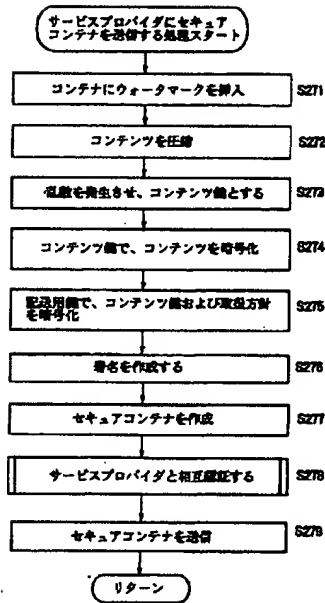 サービスプロバイダにセキュア
コンテナを送信する処理スタート
コンテナにウォータマークを挿入 S271
コンテンツを圧縮 S272
乱数を発生させ、コンテンツ鍵とする S273
コンテンツ鍵で、コンテンツを暗号化 S274
配送用鍵で、コンテンツ鍵および取扱方針
を暗号化 S275
署名を作成する S276
セキュアコンテナを作成 S277
サービスプロバイダと相互認証する S278
セキュアコンテナを送信 S279
リターン